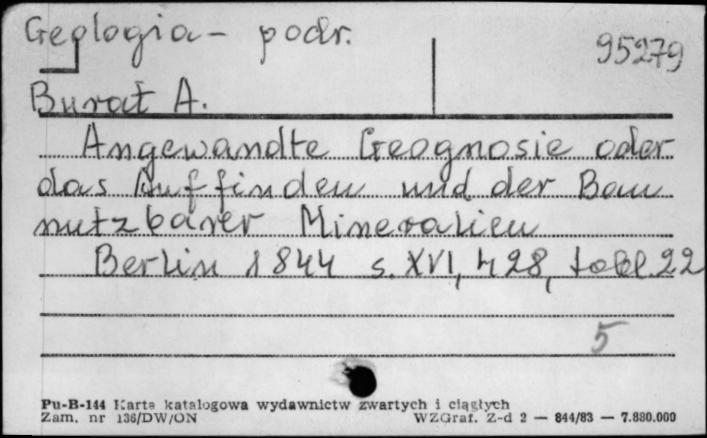 Geologia - podr.
95279
Burat A.
Angewandte Geognosie oder
das Auffinden und der Bau
nutzbarer Mineralien
Berlin 1844 s. XVI, 428, tabl. 22
5
Pu-B-144 Karta katalogowa wydawnictw zwartych i ciągłych
Zam. nr 136/DW/ON WZGraf. Z-d 2 — 844/83 — 7.880.000